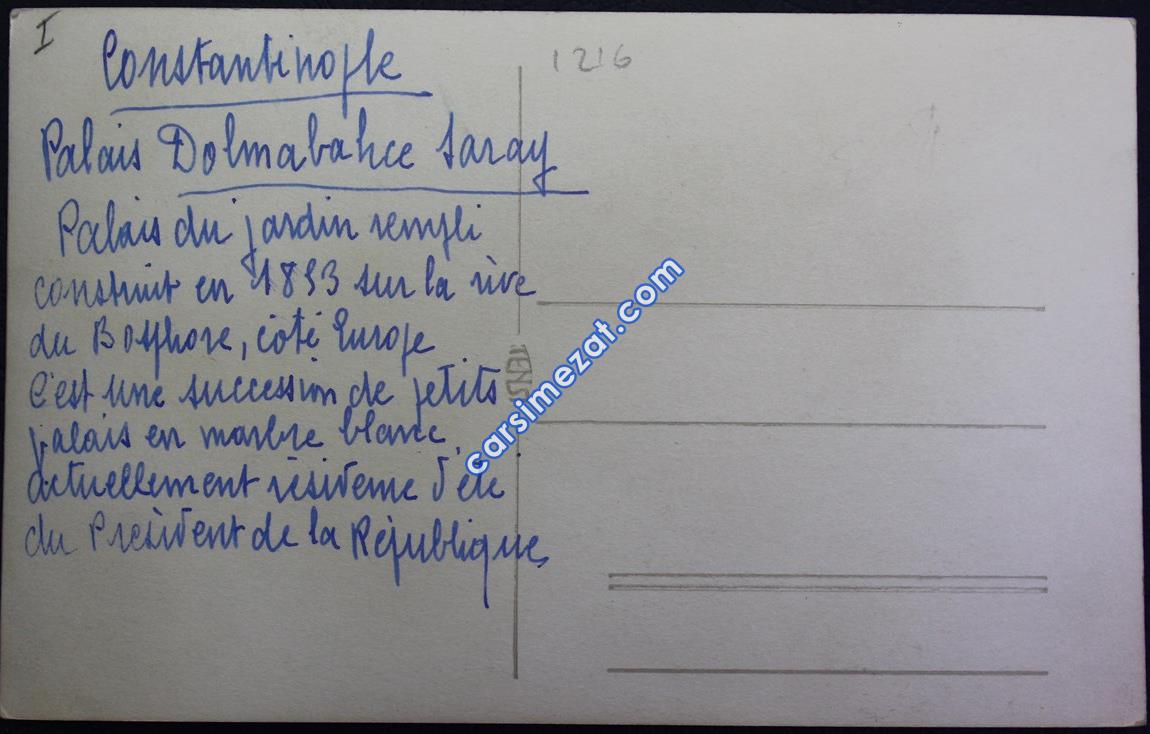 I
1216
Constantinople
Palais Dolmabahce Saray
Palais du jardin rempli
construit en 1853 sur la rive
du Bosphore, côté Europe
C'est une succession de petits
palais en marbre blanc,
actuellement résidence d'été
du Président de la République
carsimezat.com